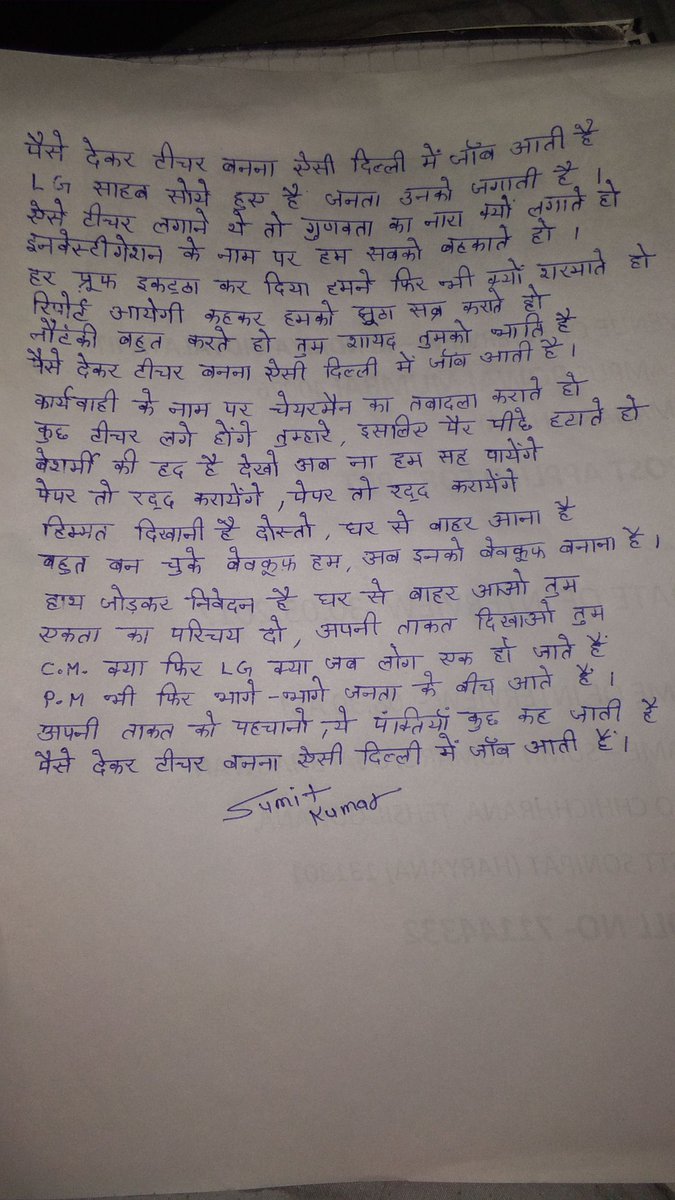 पैसे देकर टीचर बनना ऐसी दिल्ली में जॉब आती है
LG साहब सोये हुए हैं जनता उनको जगाती है ।
ऐसे टीचर लगाने थे तो गुणवता का नारा क्यों लगाते हो
इनवेस्टीगेशन के नाम पर हम सबको बहकाते हो ।
हर प्रूफ इकट्ठा कर दिया हमने फिर भी क्यों शरमाते हो
रिपोर्ट आयेगी कहकर हमको झूठा सब्र कराते हो
नौटंकी बहुत करते हो तुम शायद तुमको भाति है
पैसे देकर टीचर बनना ऐसी दिल्ली में जॉब आती है ।
कार्यवाही के नाम पर चेयरमैन का तबादला कराते हो
कुछ टीचर लगे होंगे तुम्हारे, इसलिए पैर पीछे हटाते हो
बेशर्मी की हद है देखो अब ना हम सह पायेंगे
पेपर तो रद्द करायेंगे, पेपर तो रद्द करायेंगे
हिम्मत दिखानी है दोस्तो, घर से बाहर आना है
बहुत बन चुके बेवकूफ हम, अब इनको बेवकूफ बनाना है ।
हाथ जोड़कर निवेदन है घर से बाहर आओ तुम
एकता का परिचय दो, अपनी ताकत दिखाओ तुम
C.M. क्या फिर LG क्या जब लोग एक हो जाते हैं
P.M भी फिर भागे-भागे जनता के बीच आते हैं ।
अपनी ताकत को पहचानो, ये पंक्तियाँ कुछ कह जाती है
पैसे देकर टीचर बनना ऐसी दिल्ली में जॉब आती हैं ।
Sumit
Kumar